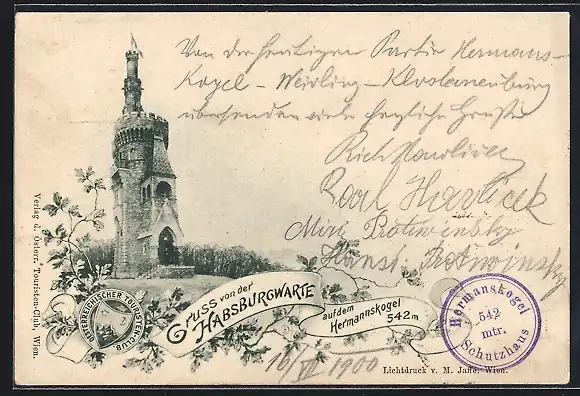 Von der heutigen Partie Hermans-
Kogel – Weidling – Klosterneuburg
übersenden viele herzliche Grüße
Rich Havlicek
Karl Havlicek
Mizi Protiwinsky
Hansi Protiwinsky
Verlag d. Österr. Touristen-Club, Wien.
ÖSTERREICHISCHER TOURISTEN-CLUB
Gruss von der
HABSBURGWARTE
auf dem
Hermannskogel
542 m
Hermannskogel
542
mtr.
Schutzhaus
10/VII 1900
Lichtdruck v. M. Jaffé, Wien.